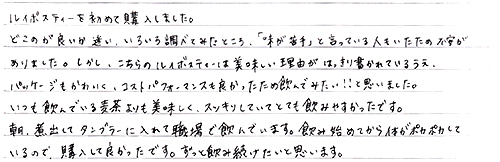 ルイボスティーを初めて購入しました。
どこのが良いか迷い、いろいろ調べてみたところ、「味が苦手」と言っている人もいたため不安が
ありました。しかし、こちらのルイボスティーは美味しい理由がはっきり書かれているうえ、
パッケージもかわいく、コストパフォーマンスも良かったため飲んでみたい!!と思いました。
いつも飲んでいる麦茶よりも美味しく、スッキリしていてとても飲みやすかったです。
朝、煮出してタンブラーに入れて職場で飲んでいます。飲み始めてから体がポカポカして
いるので、購入して良かったです。ずっと飲み続けたいと思います。